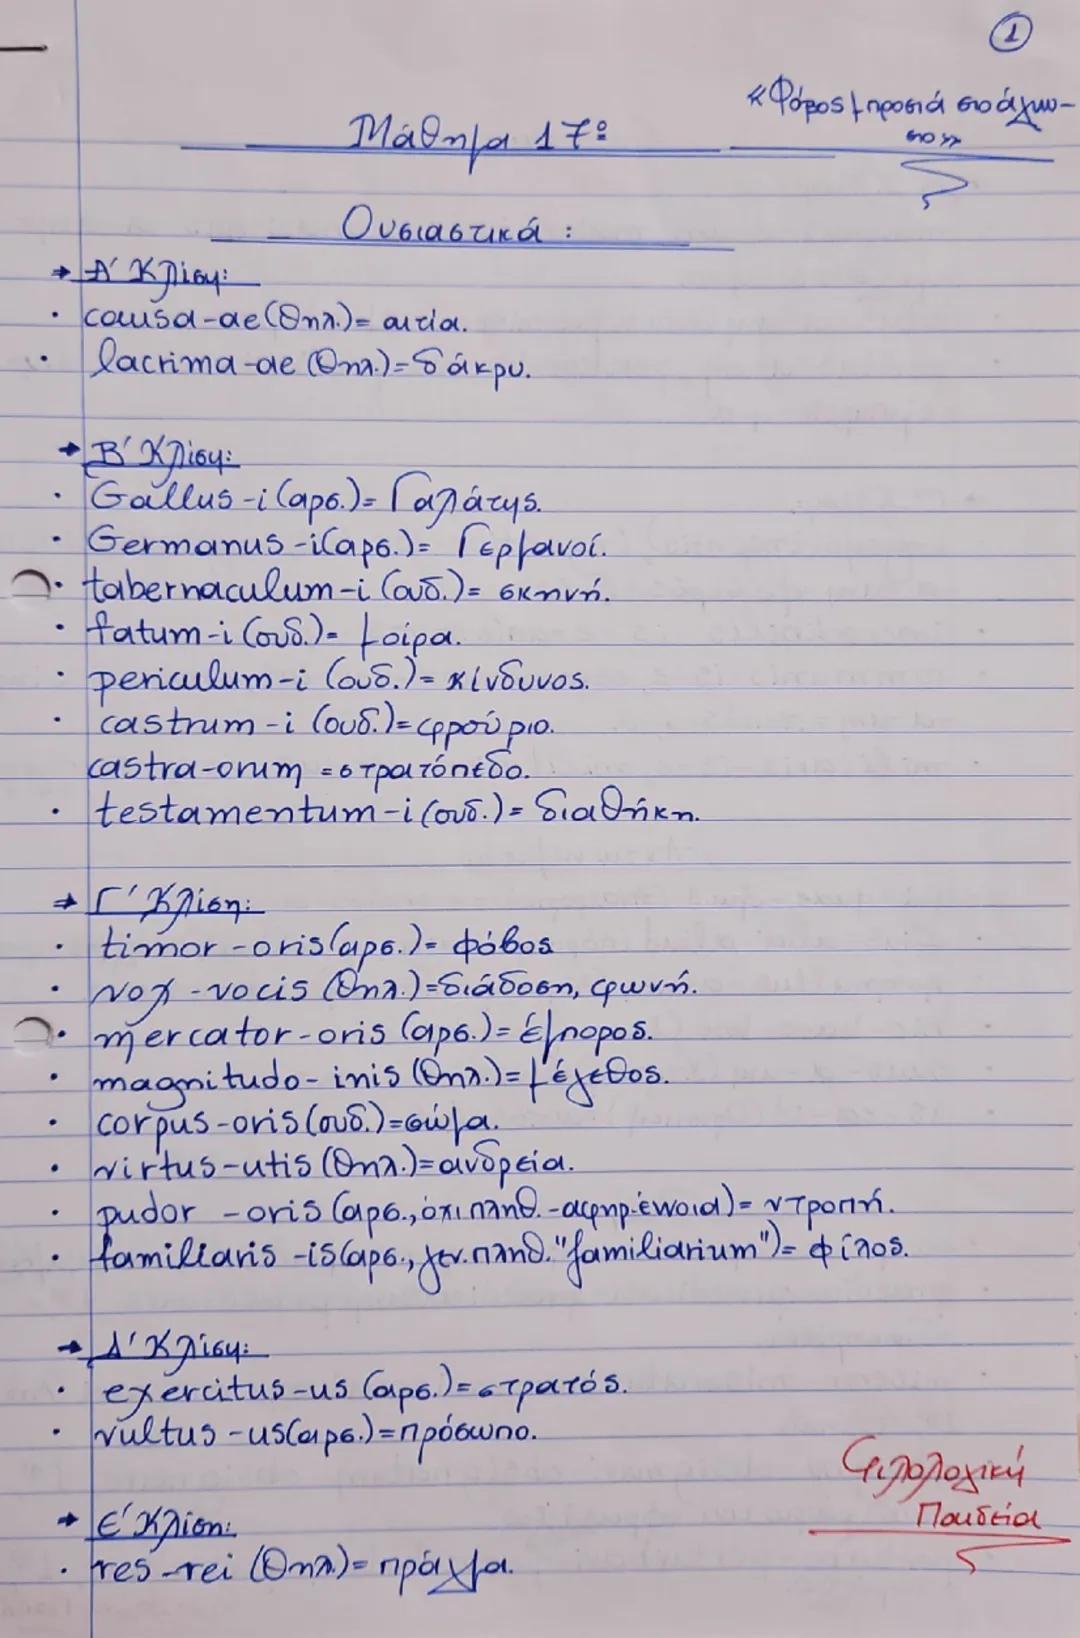 1
«Φόβος μπροστά στο άγνω-
στο»
Μάθημα 17º
Ουσιαστικά:
→ Α' Κλίση:
• causa-ae (θηλ.)= αιτία.
• lacrima-ae (θηλ.)= δάκρυ.
→ Β' Κλίση:
• Gallus-i (αρσ.)= Γαλάτης.
• Germanus-i (αρσ.)= Γερμανοί.
• tabernaculum-i (ουδ.)= σκηνή.
• fatum-i (ουδ.)= μοίρα.
• periculum-i (ουδ.)= κίνδυνος.
• castrum-i (ουδ.)= φρούριο.
castra-orum = στρατόπεδο.
• testamentum-i (ουδ.)= διαθήκη.
→ Γ' Κλίση:
• timor-oris (αρσ.)= φόβος
• vox-vocis (θηλ.)= διάδοση, φωνή.
• mercator-oris (αρσ.)= έμπορος.
• magnitudo-inis (θηλ.)= μέγεθος.
• corpus-oris (ουδ.)= σώμα.
• virtus-utis (θηλ.)= ανδρεία.
• pudor-oris (αρσ., όχι πληθ.-αφηρ. έννοια)= ντροπή.
• familiaris-is (αρσ., γεν. πληθ. "familiarium")= φίλος.
→ Δ' Κλίση:
• exercitus-us (αρσ.)= στρατός.
• vultus-us (αρσ.)= πρόσωπο.
→ Ε' Κλίση:
• res-rei (θηλ)= πράγμα.
Φιλολογική
Παιδεία